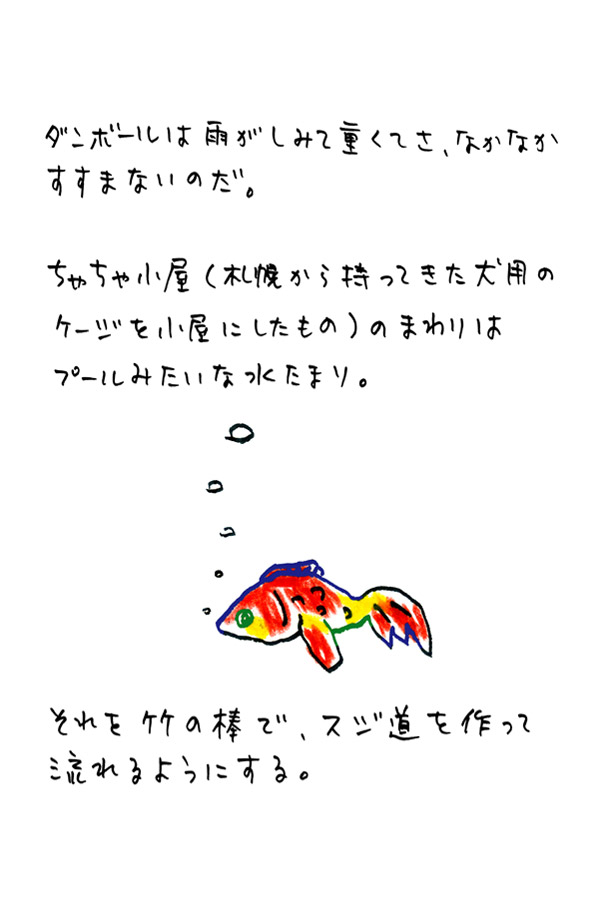 ダンボールは雨がしみて重くてさ、なかなか
すすまないのだ。
ちゃちゃ小屋(札幌から持ってきた犬用の
ケージを小屋にしたもの)のまわりは
プールみたいな水たまり。
それを竹の棒で、スジ道を作って
流れるようにする。